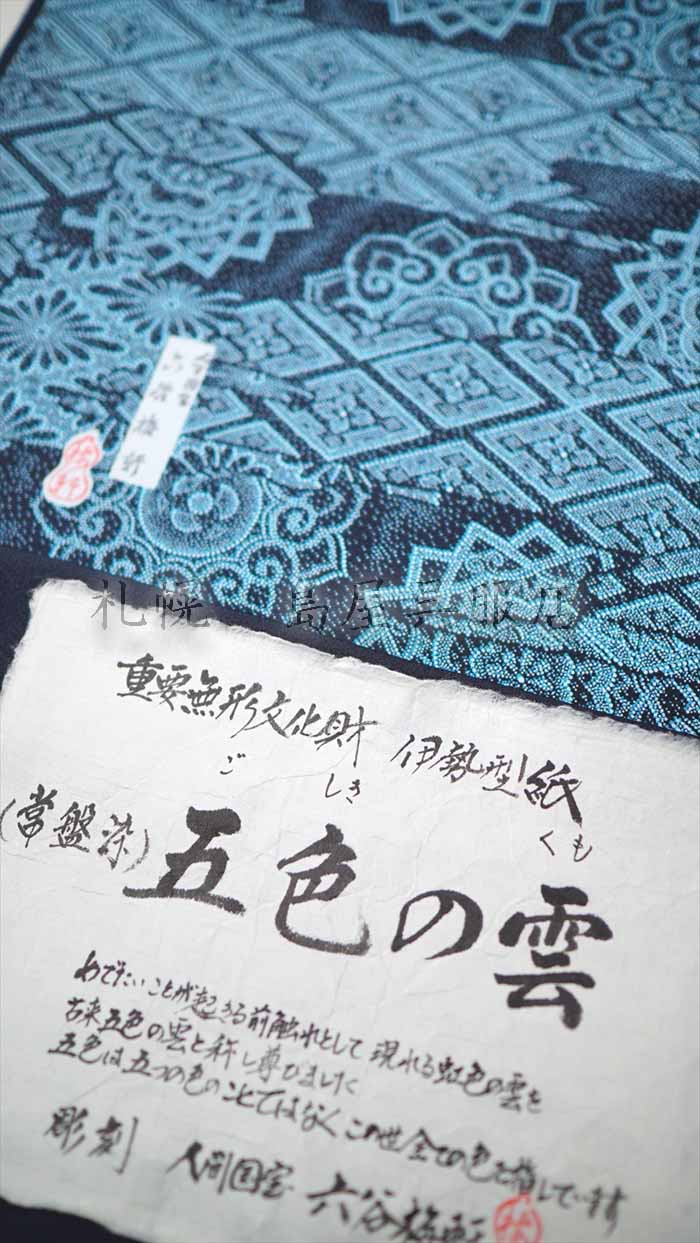 人間国宝
六谷梅軒
札幌 島屋呉服店
重要無形文化財 伊勢型紙
ご しき くも
(常盤染)五色の雲
めでたいことが起きる前触れとして 現れる虹色の雲を
古来五色の雲と称し尊びました
五色は五つの色のことではなく この世全ての色を指しています
彫刻 人間国宝 六谷梅軒